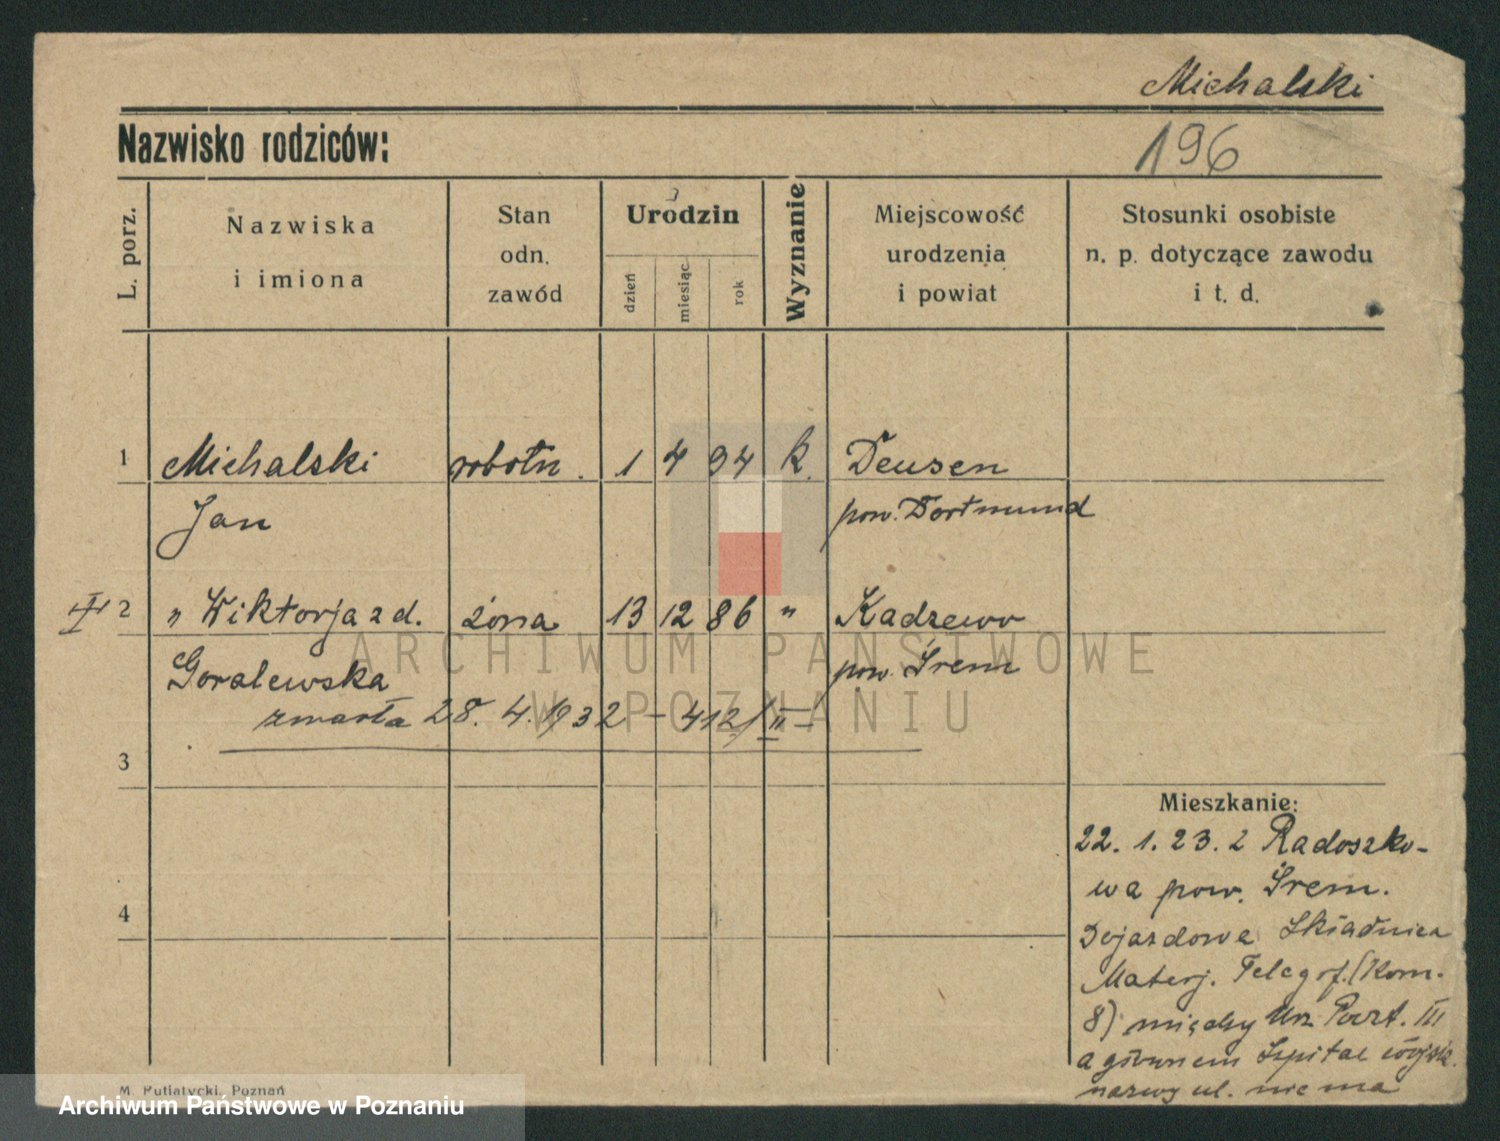 Michalski
Nazwisko rodziców:
196
L. porz.
Nazwiska
i imiona
Stan
odn.
zawód
Urodzin
dzień
miesiąc
rok
Wyznanie
Miejscowość
urodzenia
i powiat
Stosunki osobiste
n. p. dotyczące zawodu
i t. d.
1 Michalski robotn. 1 4 94 k. Deusen
Jan pow. Dortmund
II 2 " Wiktorja z d. żona 13 12 86 " Kadzewo
Goralewska pow. Śrem
zmarła 28. 4. 1932 - 412/II
3
4
Mieszkanie:
22. 1. 23. z Radoszko-
wa pow. Śrem.
Dojazdowa Składnica
Materj. Telegrf. (Kom.
8) między Urz. Poczt. III
a głównem Szpital wojsk.
nazwy ul. nie ma
M. Putiatycki, Poznań
ARCHIWUM PAŃSTWOWE
W POZNANIU
Archiwum Państwowe w Poznaniu